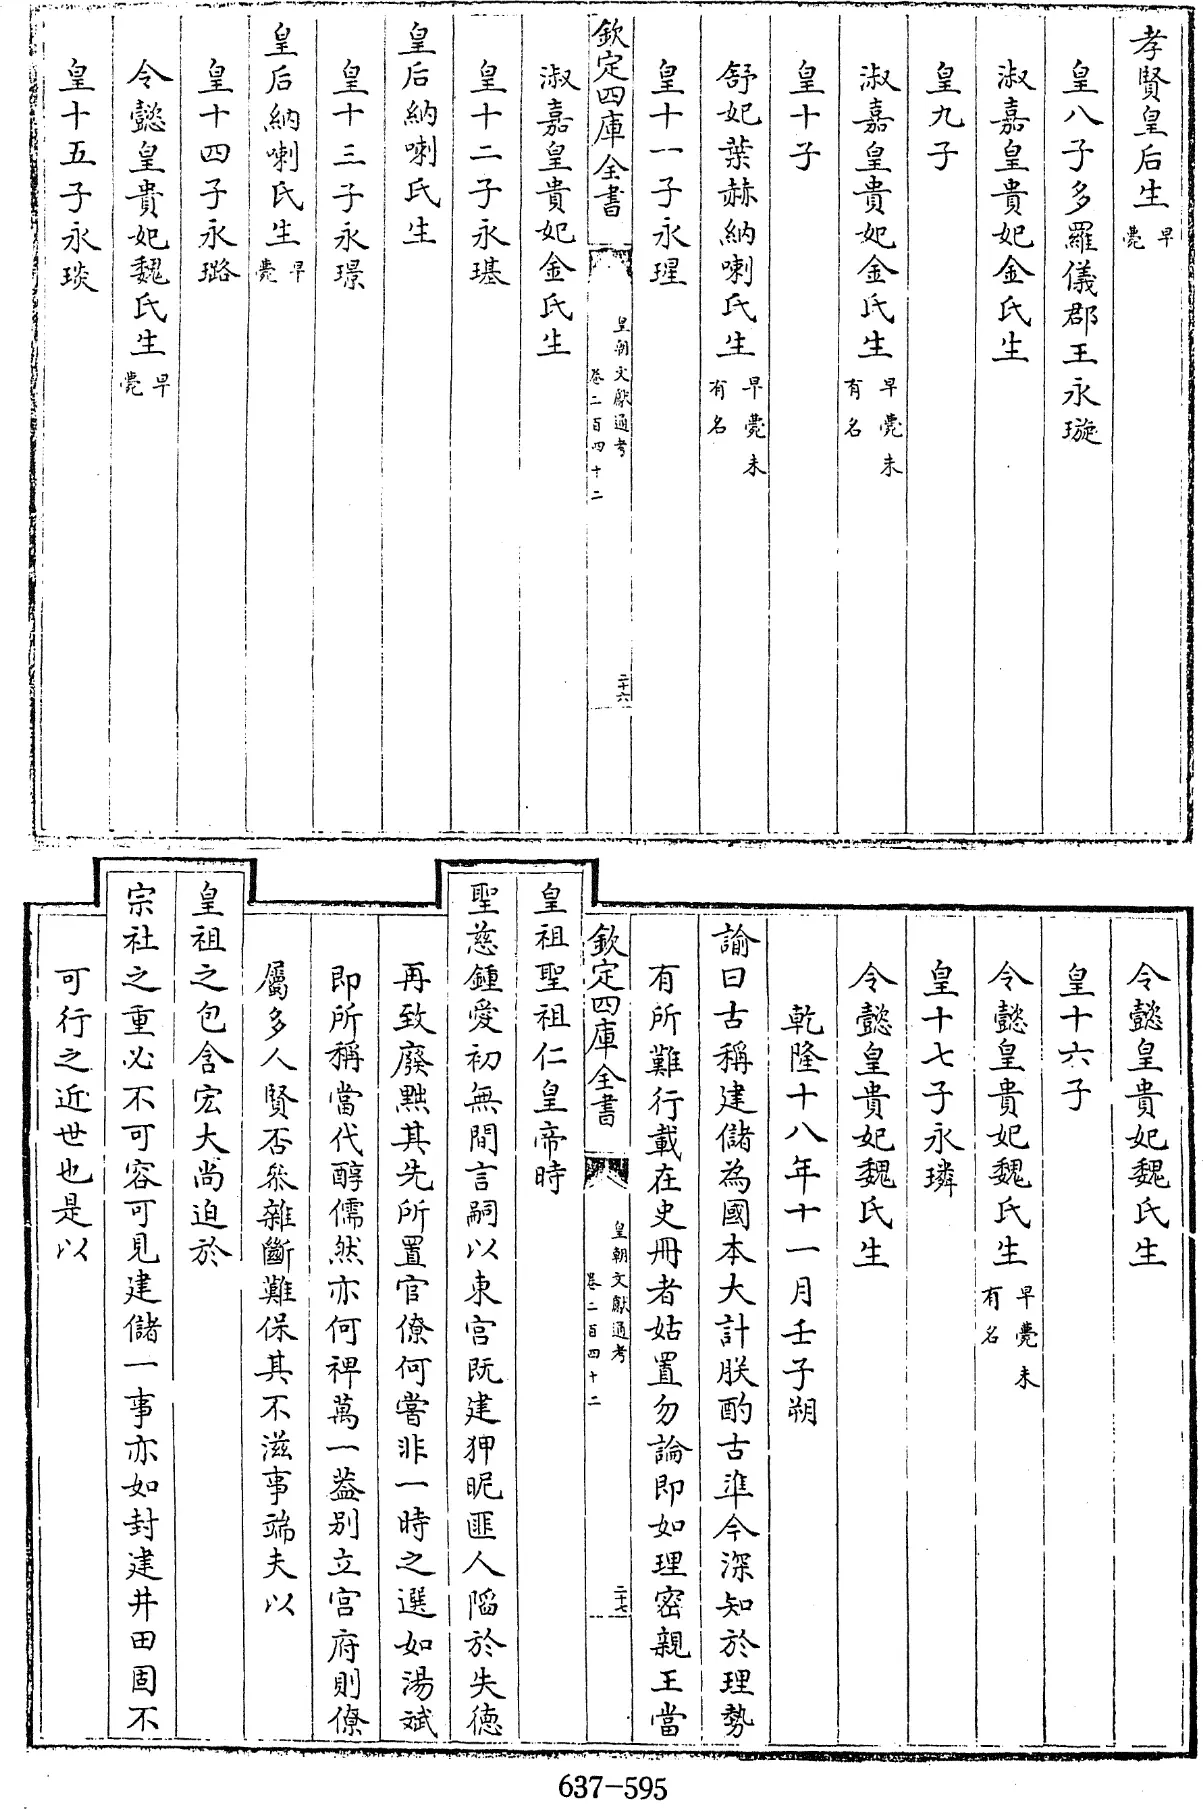 孝賢皇后生早薨
皇八子多羅儀郡王永璇
淑嘉皇貴妃金氏生
皇九子
淑嘉皇貴妃金氏生早薨未有名
皇十子
舒妃葉赫納喇氏生早薨未有名
皇十一子永瑆
欽定四庫全書
皇朝文獻通考
卷二百四十二
二十六
淑嘉皇貴妃金氏生
皇十二子永璂
皇后納喇氏生
皇十三子永璟
皇后納喇氏生早薨
皇十四子永璐
令懿皇貴妃魏氏生早薨
皇十五子永琰
令懿皇貴妃魏氏生
皇十六子
令懿皇貴妃魏氏生早薨未有名
皇十七子永璘
令懿皇貴妃魏氏生
乾隆十八年十一月壬子朔
諭曰古稱建儲為國本大計朕酌古準今深知於理勢
有所難行載在史冊者姑置勿論即如理密親王當
欽定四庫全書
皇朝文獻通考
卷二百四十二
二十七
皇祖聖祖仁皇帝時
聖慈鍾愛初無間言嗣以東宫既建狎昵匪人陷於失徳
再致廢黜其先所置官僚何嘗非一時之選如湯斌
即所稱當代醇儒然亦何裨萬一葢别立宫府則僚
屬多人賢否叅雜斷難保其不滋事端夫以
皇祖之包含宏大尚迫於
宗社之重必不可容可見建儲一事亦如封建井田固不
可行之近世也是以
637-595